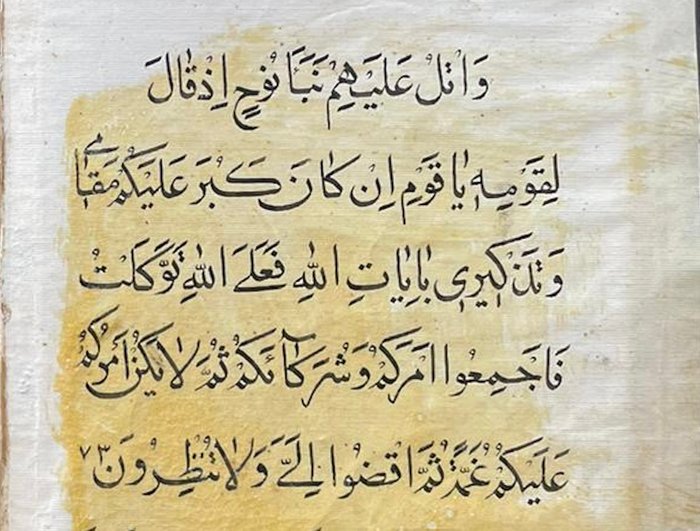 وَاتْلُ عَلَيْهِمْ نَبَأَ نُوحٍ اِذْ قَالَ
لِقَوْمِهٖ يَا قَوْمِ اِنْ كَانَ كَبُرَ عَلَيْكُمْ مَقَامٖى
وَتَذْكٖيرٖى بِاٰيَاتِ اللّٰهِ فَعَلَى اللّٰهِ تَوَكَّلْتُ
فَاَجْمِعُوا اَمْرَكُمْ وَشُرَكَآئَكُمْ ثُمَّ لَا يَكُنْ اَمْرُكُمْ
عَلَيْكُمْ غُمَّةً ثُمَّ اقْضُوا اِلَىَّ وَلَا تُنْظِرُونَ ٧٣